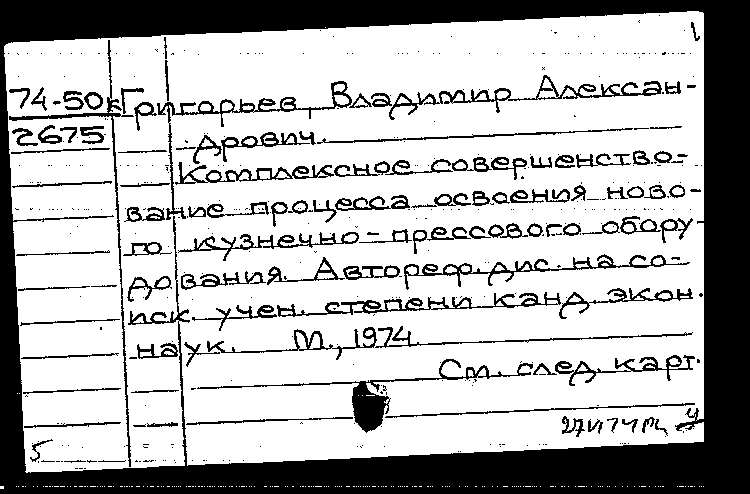 1
74-50к Григорьев, Владимир Алексан-
2675 дрович.
Комплексное совершенство-
вание процесса освоения ново-
го кузнечно-прессового обору-
дования. Автореф. дис. на со-
иск. учен. степени канд. экон.
наук. М., 1974.
См. след. карт.
5